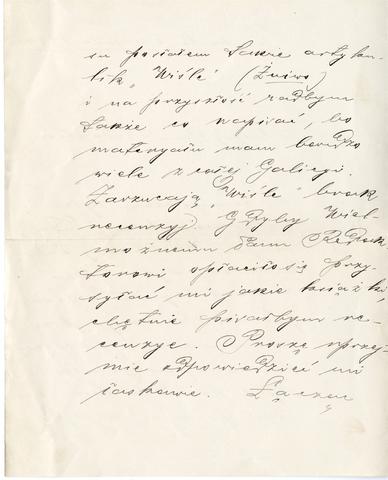 su posłałem także artyku-
lik „Wiśle” (Żniwo)
i na przyszłość radbym
także co napisać, bo
materyału mam bardzo
wiele z całej Galicyi.
Zarzucają „Wiśle” brak
recenzyj. Gdyby Wiel-
możnemu Panu Redak
torowi opłaciło się przy-
syłać mi jakie książki
chętnie pisałbym re-
cenzye. Proszę uprzej-
mie odpowiedzieć mi
łaskawie. Łączę